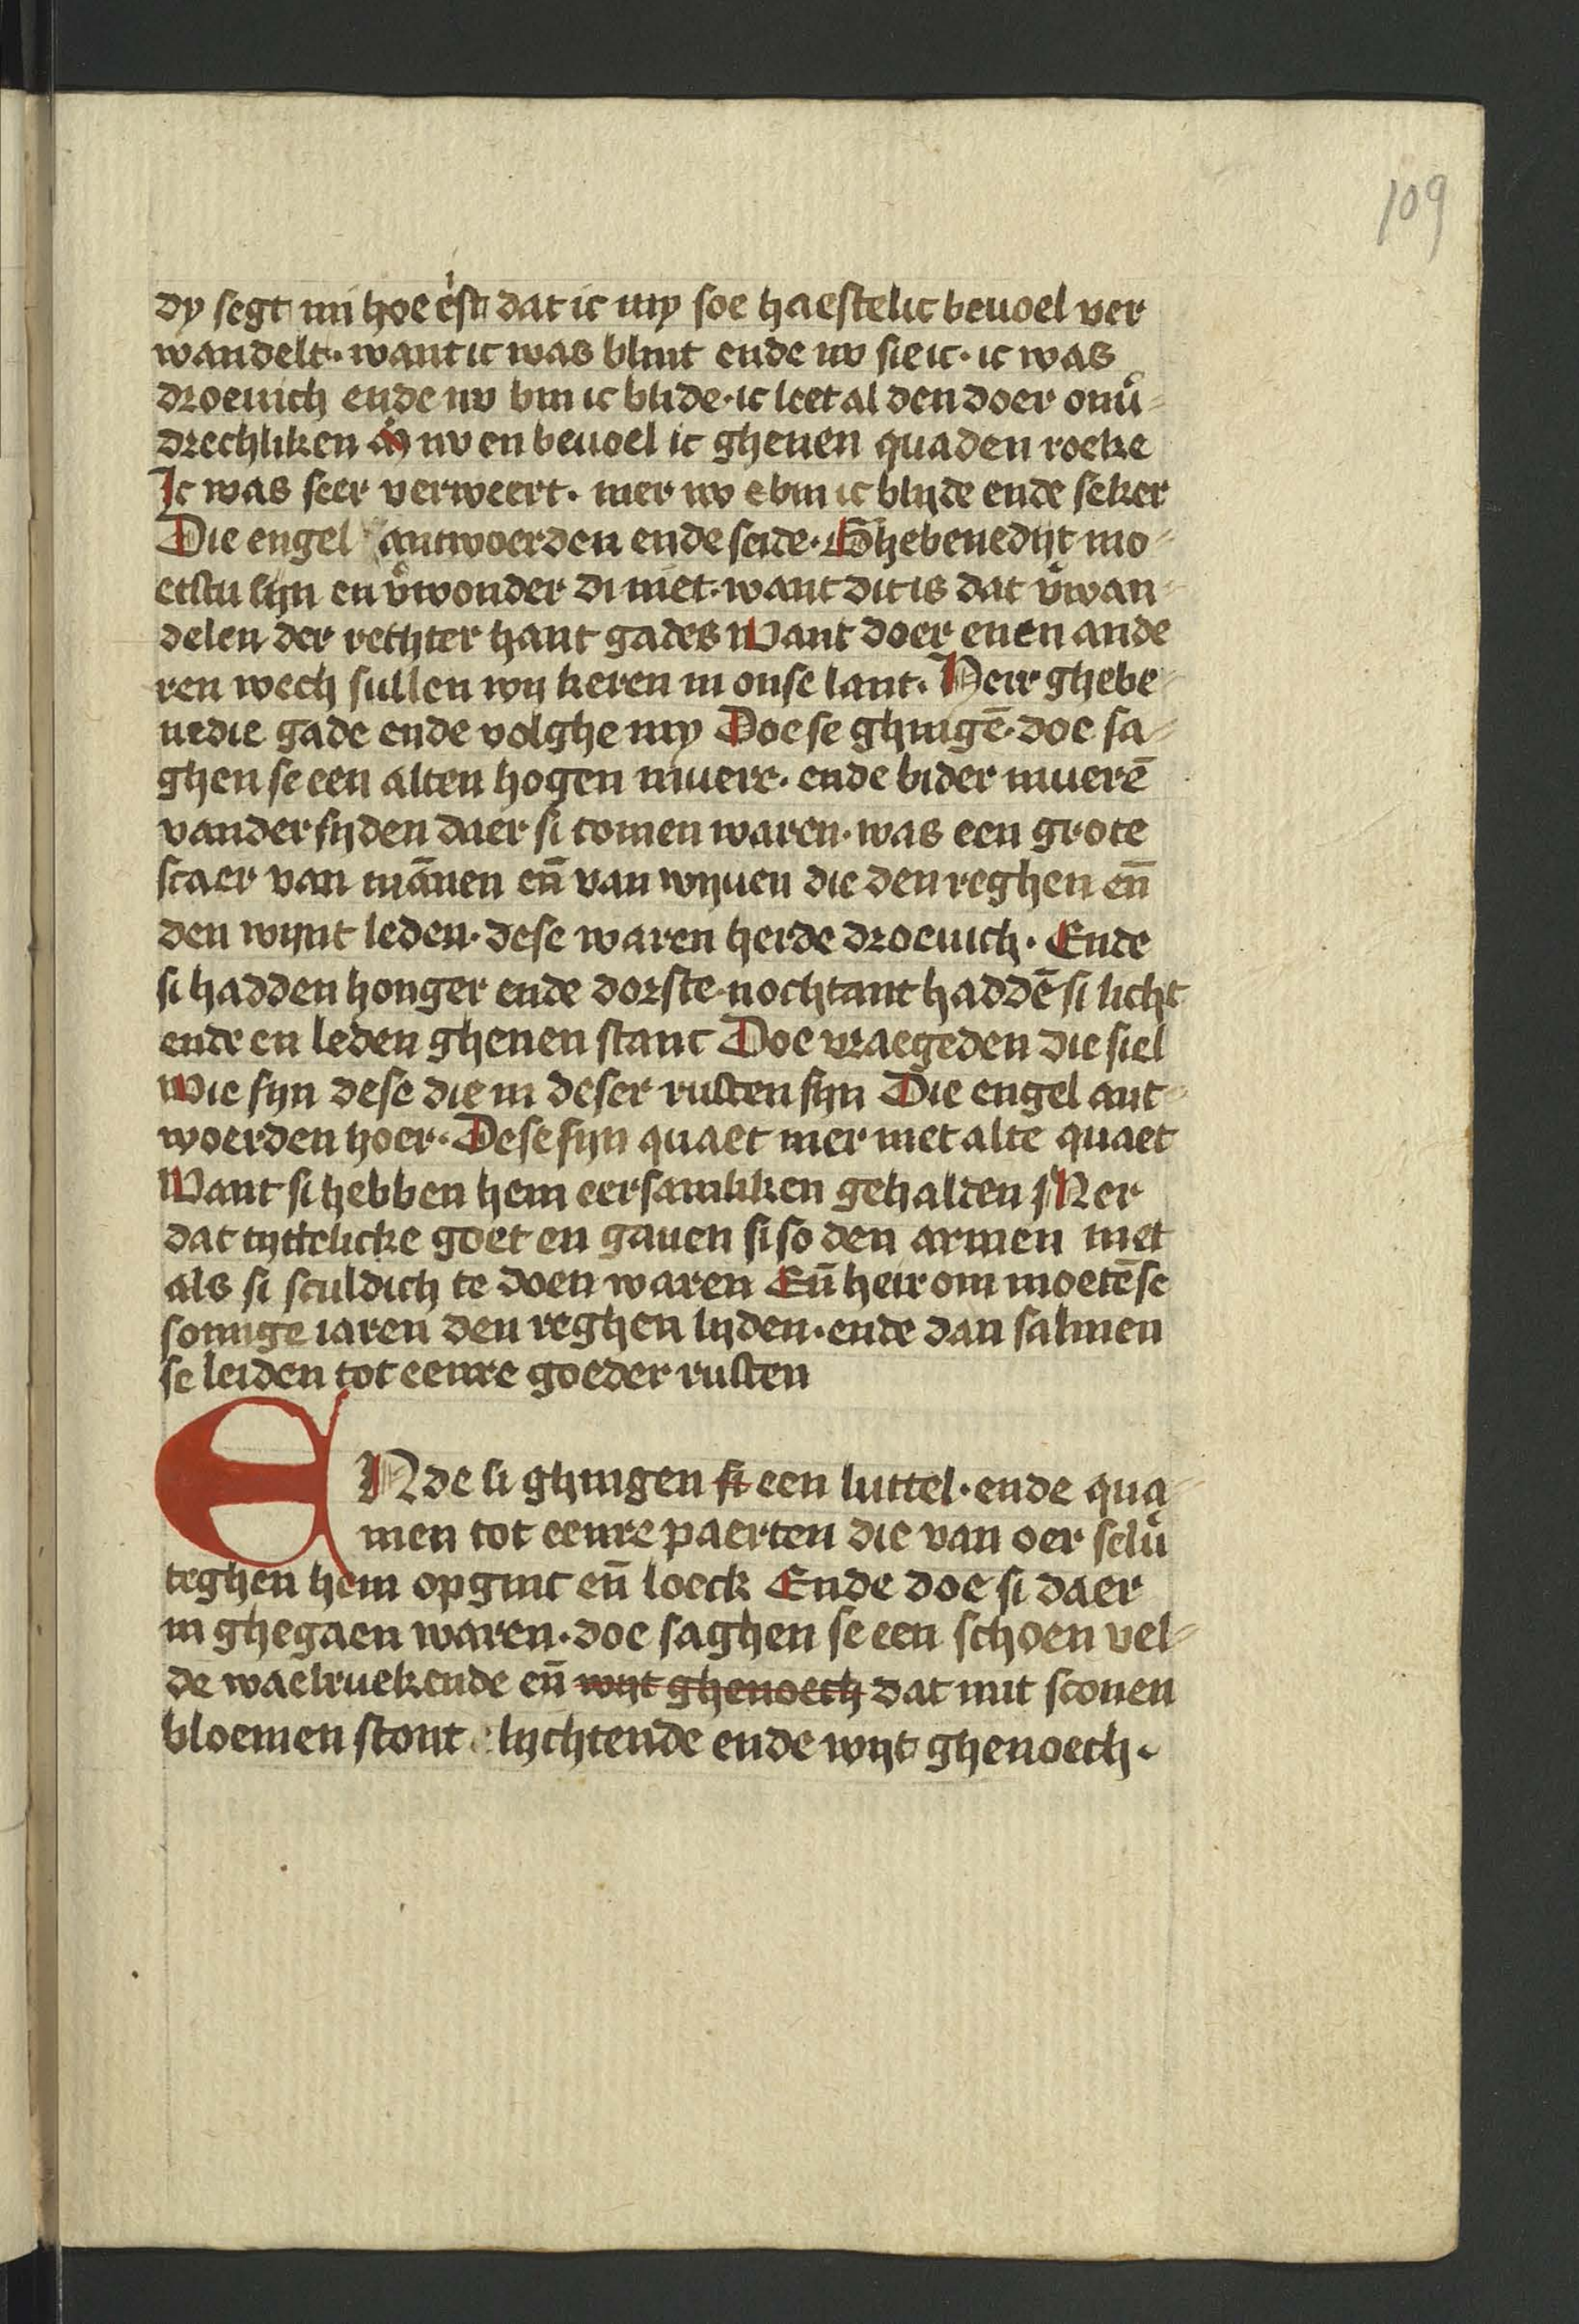 109
dy segt mi hoe eist dat ic my soe haestelic beuoel ver
wandelt · want ic was blint ende nv sie ic · ic was
droeuich ende nv bin ic blide · ic leet al den doer onu͛-
drechliken nv en beuoel ic ghenen quaden roeke
Ic was seer verweert · mer nv bin ic blijde ende seker
Die engel antwoerden ende seide · Ghebenedijt mo-
etstu sijn en v͛wonder di niet · want dit is dat v͛wan-
delen der rechter hant gades Want doer enen ande
ren wech sullen wij keren in onse lant · Heir ghebe-
nedie gade ende volghe my Doe se ghingē · doe sa-
ghen se een alten hogen muere · ende bider muerē
vander sijden daer si comen waren · was een grote
scaer van mānen en̄ van wijuen die den reghen en̄
den wijnt leden · dese waren herde droeuich · Ende
si hadden honger ende dorste · nochtant haddē si licht
ende en leden ghenen stanc Doe vraegeden die siel
Wie sijn dese die in deser rusten sijn Die engel ant-
woerden hoer · Dese sijn quaet mer niet alte quaet
Want si hebben hem eersamliken gehalden Mer
dat tijttelicke goet en gauen si so den armen niet
als si sculdich te doen waren En̄ heir om moetē se
somige iaren den reghen lijden · ende dan salmen
se leiden tot eenre goeder rusten
ENde si ghingen si een luttel · ende qua-
men tot eenre paerten die van oer selu͛
teghen hem opginc en̄ loeck Ende doe si daer
in ghegaen waren · doe saghen se een schoen vel-
de waelruekende en̄ wijt ghenoech dat mit sconen
bloemen stont lijchtende ende wijt ghenoech ·